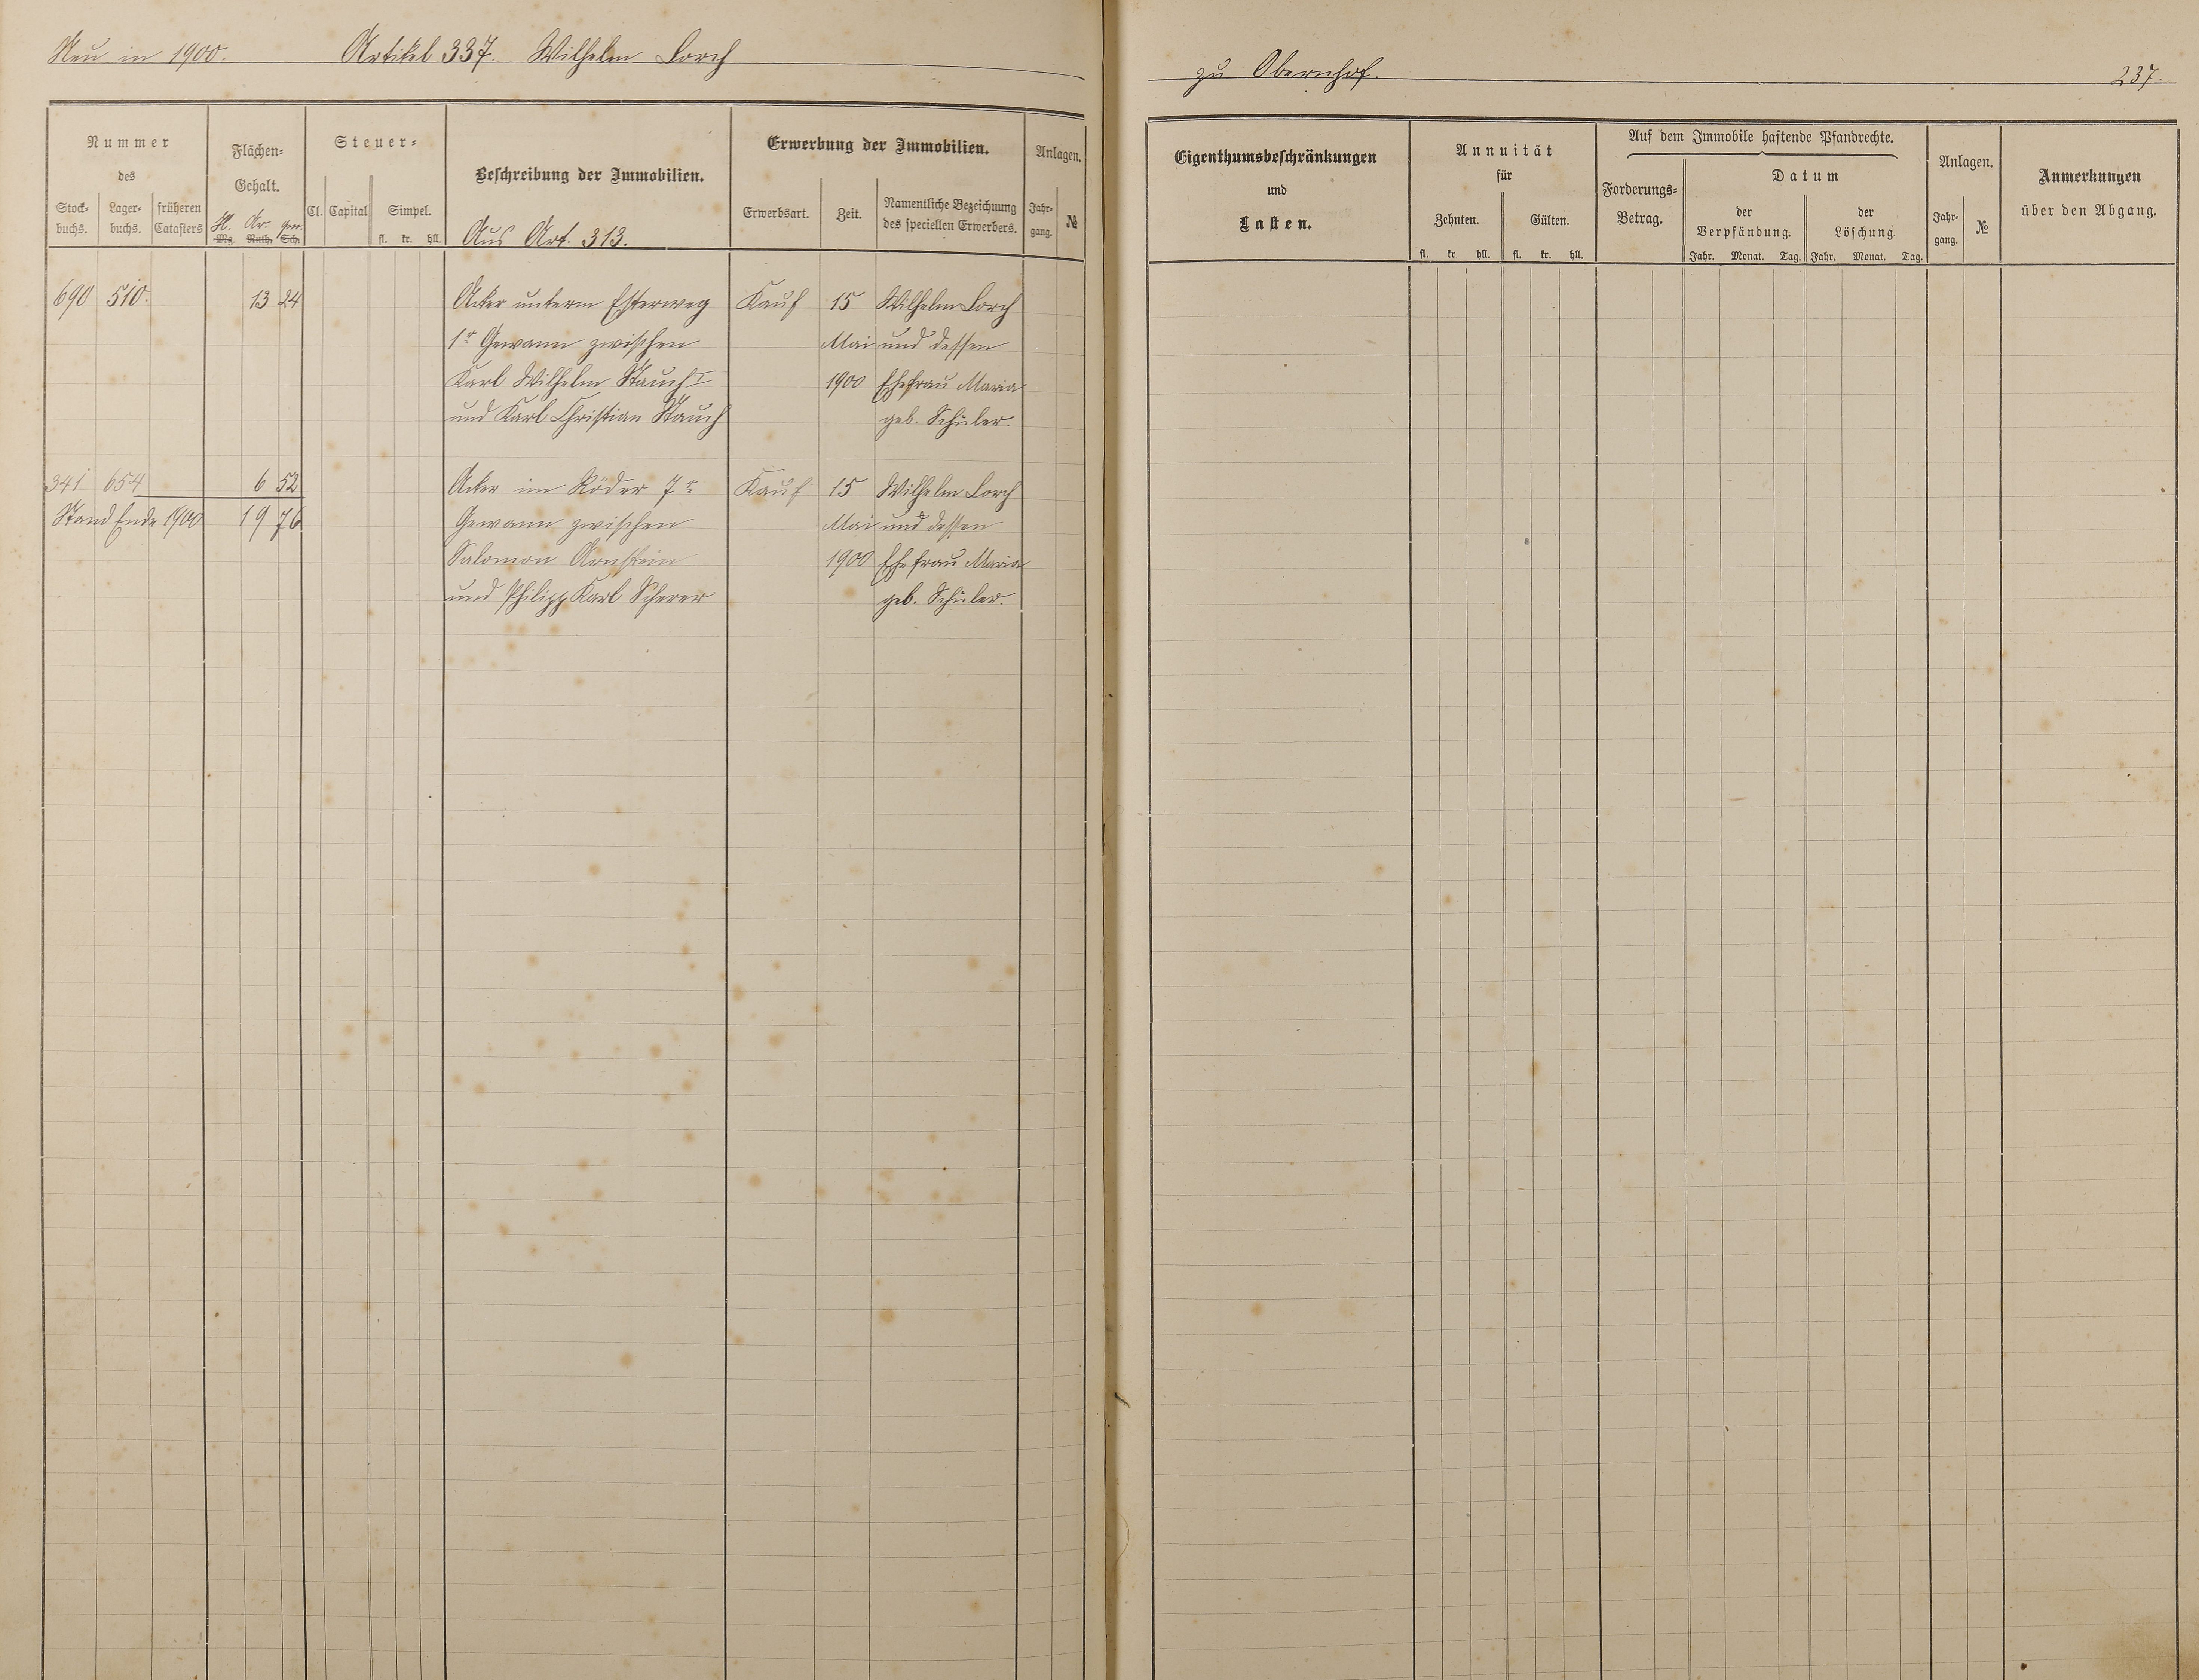 Neu in 1900. Artikel 337. Wilhelm Lorch
zu Obernhof. 237.
Nummer
des
Stock-
buchs.
Lager-
buchs.
früheren
Catasters
Flächen-
Gehalt.
H. Ar. qm.
Mg. Ruth. Sch.
Steuer-
Cl. Capital Simpel.
fl. kr. hll.
Beschreibung der Immobilien.
Aus Art. 313.
Erwerbung der Immobilien.
Erwerbsart. Zeit.
Namentliche Bezeichnung
des speciellen Erwerbers.
Anlagen.
Jahr-
gang.
№
Eigenthumsbeschränkungen
und
Lasten.
Annuität
für
Zehnten. Gülten.
fl. kr. hll. fl. kr. hll.
Auf dem Immobile haftende Pfandrechte.
Forderungs-
Betrag.
Datum
der
Verpfändung.
der
Löschung.
Jahr. Monat. Tag. Jahr. Monat. Tag.
Anlagen.
Jahr-
gang.
№
Anmerkungen
über den Abgang.
690 510. 13 24 Acker unterm Esterweg Kauf 15 Wilhelm Lorch
1r Gewann zwischen Mai und dessen
Karl Wilhelm Stauch I 1900 Ehefrau Maria
und Karl Christian Stauch geb. Schüler.
341 654 6 52 Acker im Röder 7r Kauf 15 Wilhelm Lorch
Stand Ende 1900 19 76 Gewann zwischen Mai und dessen
Salomon Arnstein 1900 Ehefrau Maria
und Philipp Karl Scherer geb. Schüler.